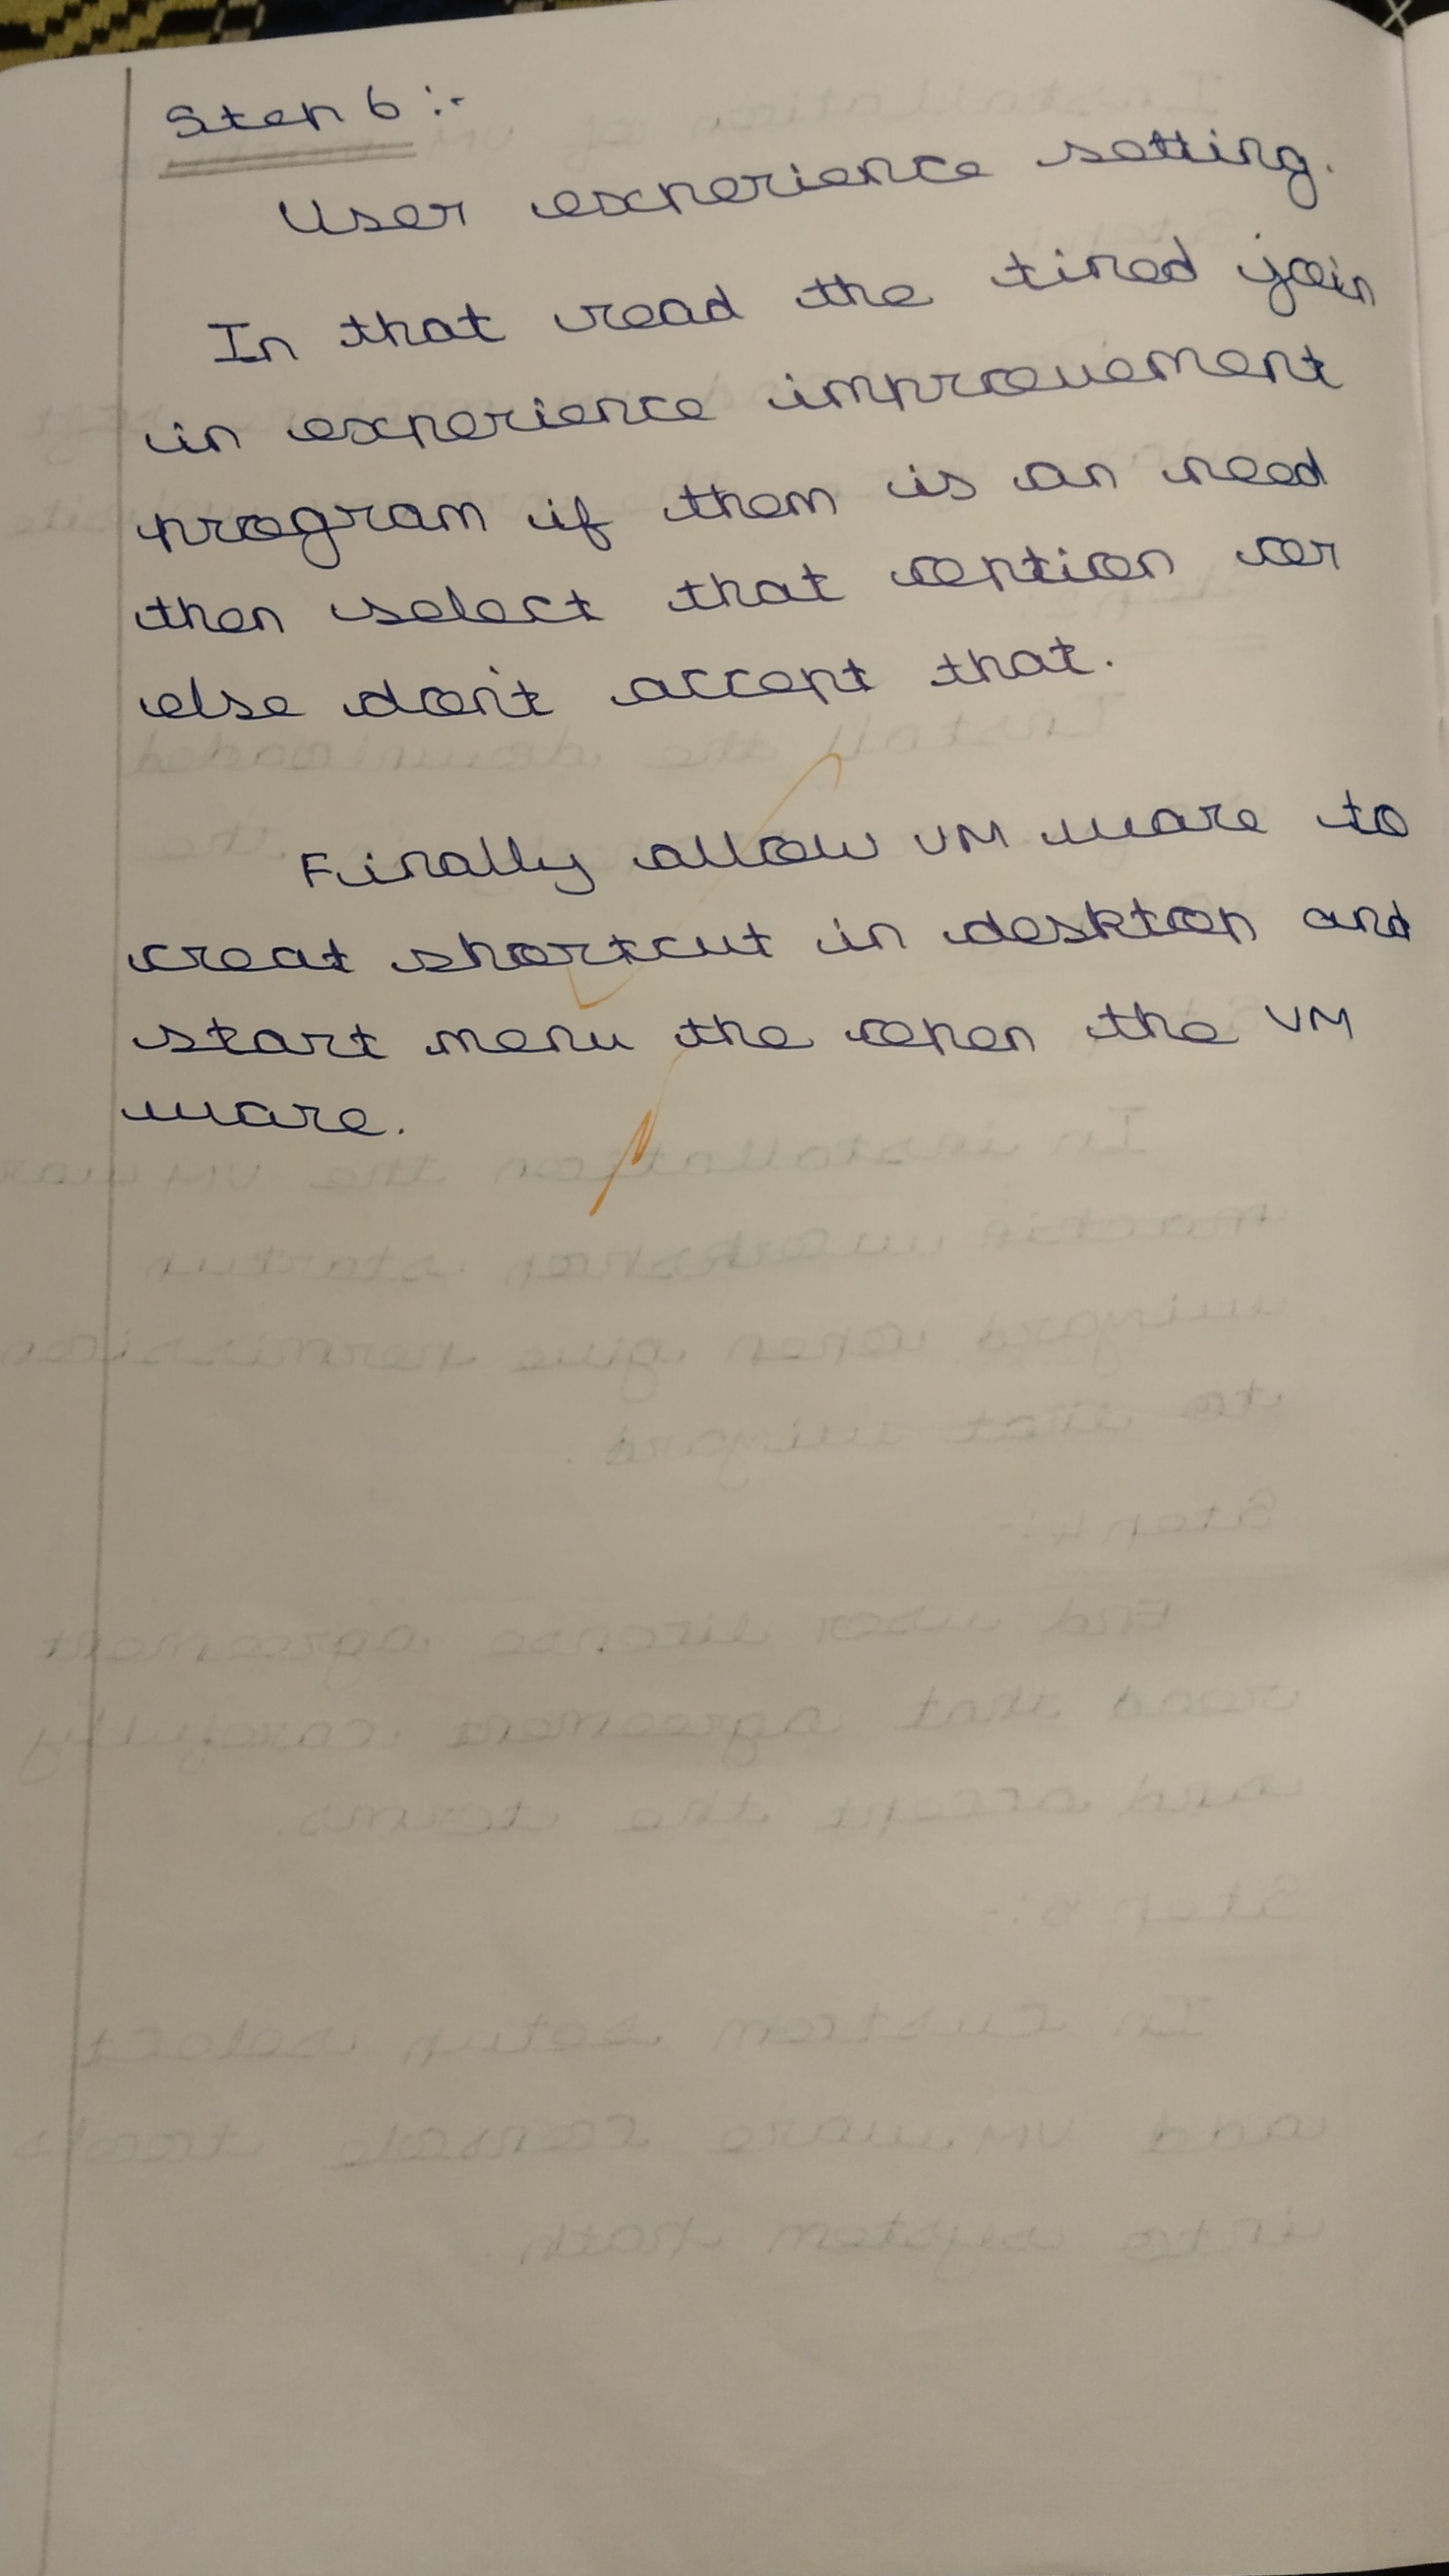 Step 6 :-
User experience setting.
In that read the tired join
in experience improvement
program if them is an need
then select that option or
else don't accept that.
Finally allow VM ware to
creat shortcut in desktop and
start menu the open the VM
ware.